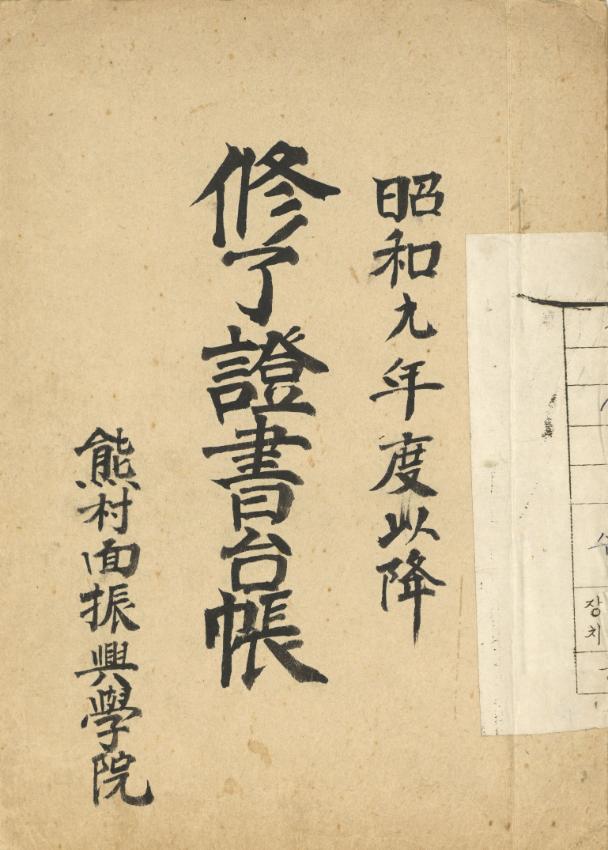 昭和九年度以降
修了證書台帳
熊村面振興學院
장
치